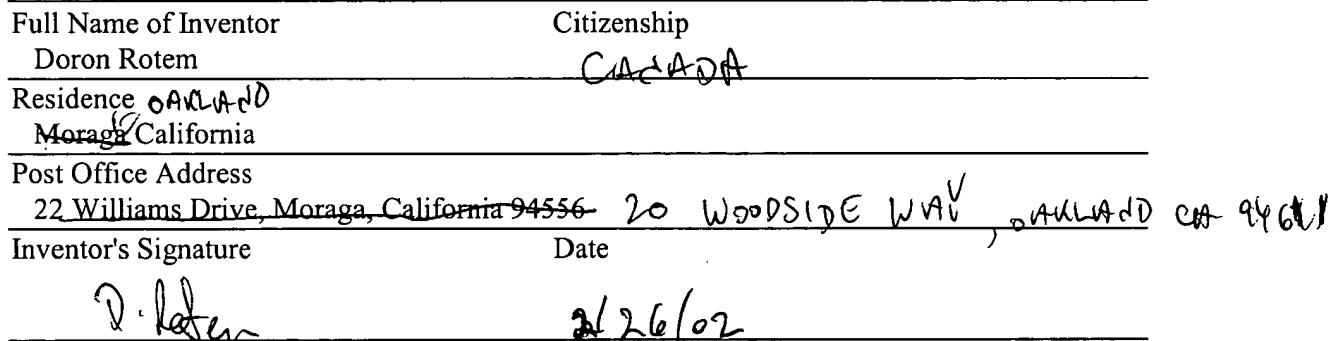 Full Name of Inventor Citizenship
Doron Rotem CANADA
Residence OAKLAND
Moraga California
Post Office Address
22 Williams Drive, Moraga, California 94556 20 WOODSIDE WAY, OAKLAND CA
Inventor's Signature Date
D. Rotem 2/26/02